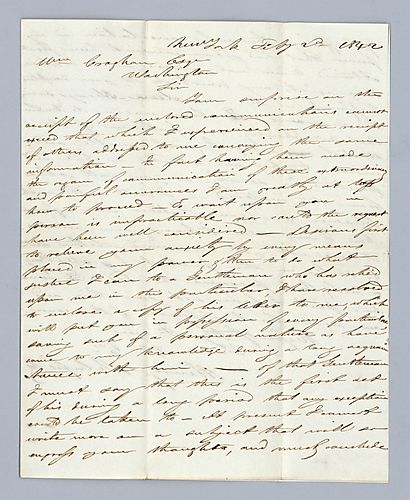 New York Feby 2d 1842
Wm Croghan Esqr
Washington
Sir
Your surprise on the
receipt of the enclosed communications cannot
exceed that which I experienced on the receipt
of others addressed to me conveying the same
information - To fact having been made
the organ of communication of these extraordinary
and painful occurrences I am greatly at loss
how to proceed - to wait upon you in
person is impracticable nor could the request
have been well considered - Desirous first
to relieve your anxiety by every means
placed in my power & then to do what
justice I can to a Gentleman who has relied
upon me in this particular I have resolved
to enclose a copy of his letter to me, which
will put you in possession of every particular
saving such of a personal nature as have
come to my knowledge during a long acquain
tance with him - of that Gentleman
I must say that this is the first act
of his during a long period that any exception
could be taken to - At present I cannot
write more on a subject that will so
engross your thoughts, and must conclude